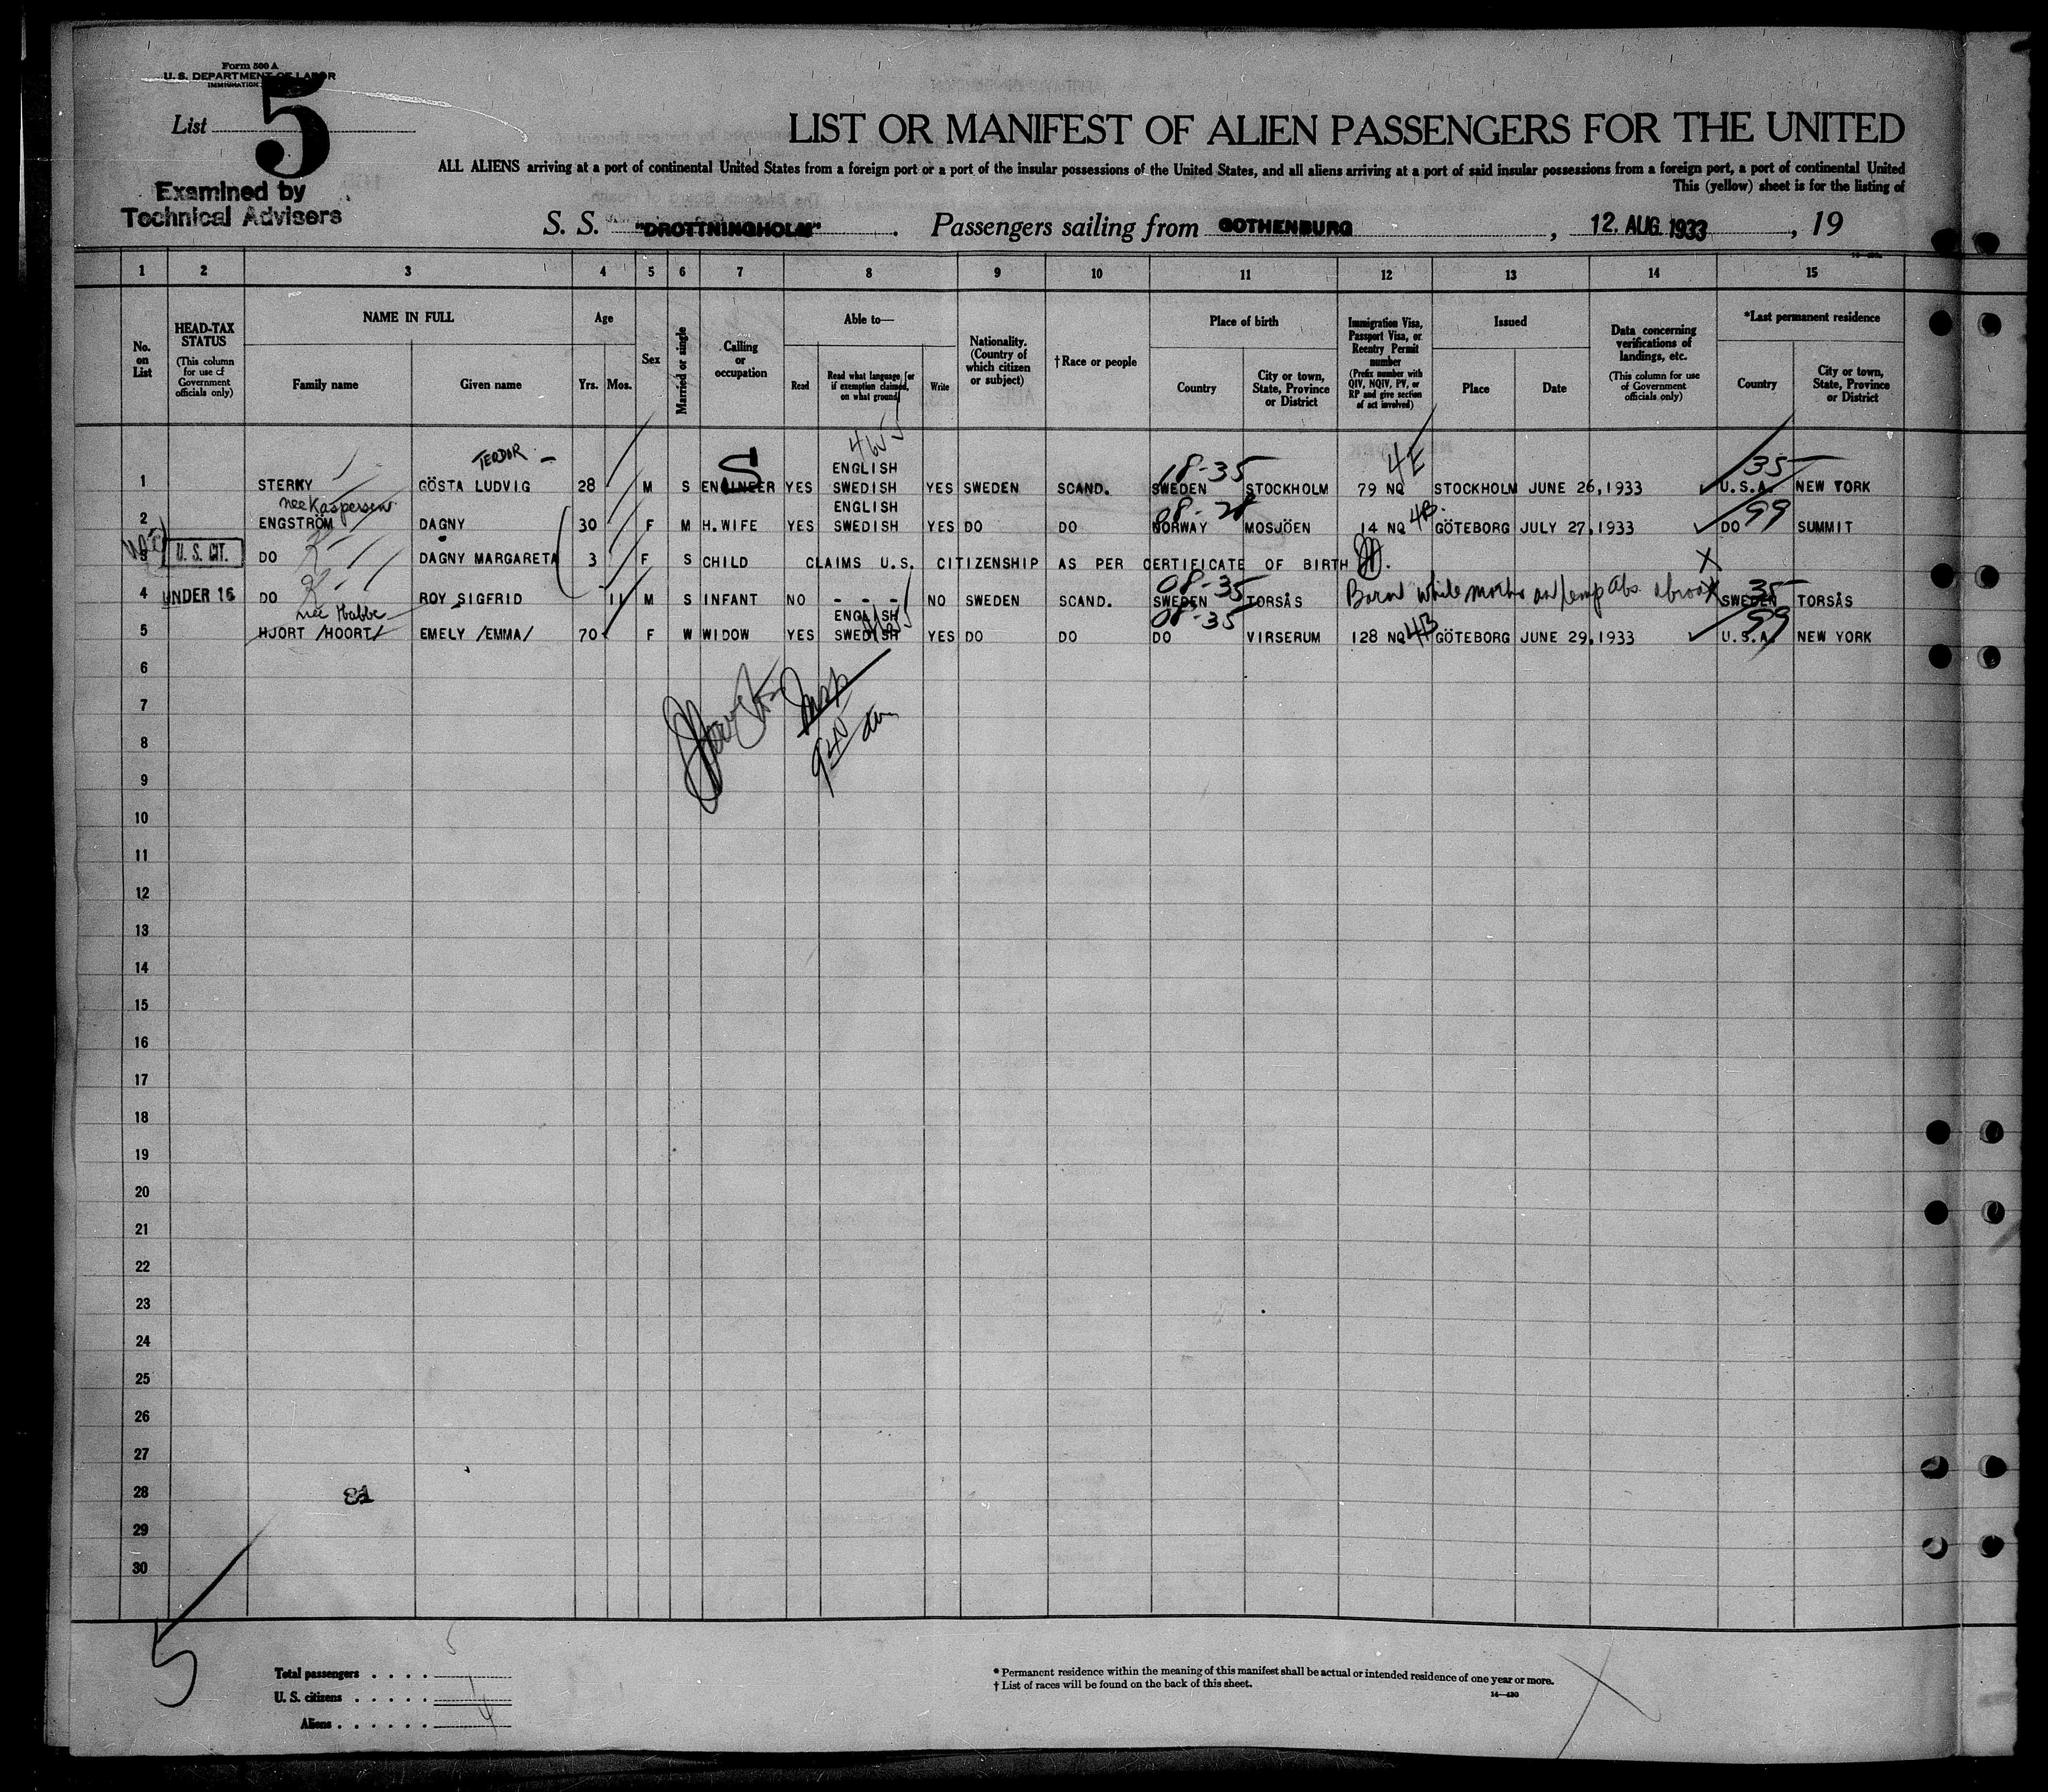 Form 500 A
U. S. DEPARTMENT OF LABOR
IMMIGRATION
List 5
Examined by
Technical Advisers
LIST OR MANIFEST OF ALIEN PASSENGERS FOR THE UNITED
ALL ALIENS arriving at a port of continental United States from a foreign port or a port of the insular possessions of the United States, and all aliens arriving at a port of said insular possessions from a foreign port, a port of continental United
This (yellow) sheet is for the listing of
S. S. "DROTTNINGHOLM". Passengers sailing from GOTHENBURG, 12. AUG. 1933, 19
1 2 3 4 5 6 7 8 9 10 11 12 13 14 15
No. on List
HEAD-TAX STATUS (This column for use of Government officials only)
NAME IN FULL
Family name
Given name
Age
Yrs. Mos.
Sex
Married or single
Calling or occupation
Able to—
Read
Read what language [or if exemption claimed, on what ground]
Write
Nationality. (Country of which citizen or subject)
†Race or people
Place of birth
Country
City or town, State, Province or District
Immigration Visa, Passport Visa, or Reentry Permit number (Prefix number with QIV, NQIV, PV, or RP and give section of act involved)
Issued
Place
Date
Data concerning verifications of landings, etc. (This column for use of Government officials only)
*Last permanent residence
Country
City or town, State, Province or District
TEODOR 4E
ENGLISH 18-35 35
1 STERKY GÖSTA LUDVIG 28 M S ENGINEER S YES SWEDISH YES SWEDEN SCAND. SWEDEN STOCKHOLM 79 NQ STOCKHOLM JUNE 26,1933 U.S.A. NEW YORK
nee Kaspersen ENGLISH 08-28 4B 99
2 ENGSTRÖM DAGNY 30 F M H.WIFE YES SWEDISH YES DO DO NORWAY MOSJÖEN 14 NQ GÖTEBORG JULY 27,1933 DO SUMMIT
3 U. S. CIT. DO DAGNY MARGARETA 3 F S CHILD CLAIMS U.S. CITIZENSHIP AS PER CERTIFICATE OF BIRTH. X
08-35 35
4 UNDER 16 DO ROY SIGFRID 11 M S INFANT NO - - - NO SWEDEN SCAND. SWEDEN TORSÅS Born while mother on temp abs. abroad SWEDEN TORSÅS
nee Habbe ENGLISH 08-35 4B 99
5 HJORT /HOORT/ EMELY /EMMA/ 70 F W WIDOW YES SWEDISH YES DO DO DO VIRSERUM 128 NQ GÖTEBORG JUNE 29,1933 U.S.A. NEW YORK
6
7
8
9
10
11
12
13
14
15
16
17
18
19
20
21
22
23
24
25
26
27
28
29
30
5
Total passengers . . . . 5
U. S. citizens . . . . .
Aliens . . . . . . 4
* Permanent residence within the meaning of this manifest shall be actual or intended residence of one year or more.
† List of races will be found on the back of this sheet.
14—430